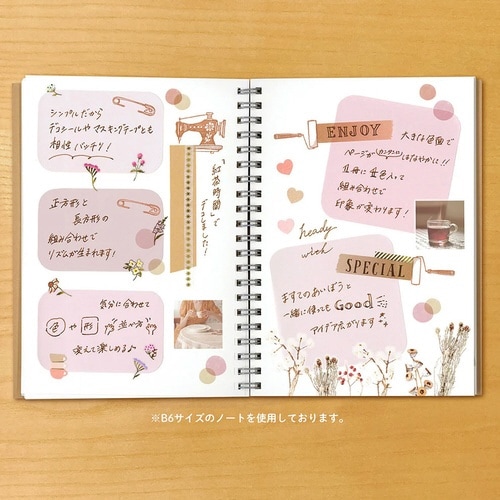 シンプルだから
デコシールやマスキングテープとも
相性バッチリ!
正方形と
長方形の
組み合わせで
リズムが生まれます!
気分に合わせて
色や形"並べ方"
変えて楽しめる♪
"紅茶時間"で
デコしました!
ENJOY
大きな色面で
ページがカンタンにはなやかに!!
1冊に 色入って
組み合わせで
印象が変わります!
ready
with
SPECIAL
ますてのあいぼうと
一緒に使っても Good
アイデア広がります
※B6サイズのノートを使用しております。